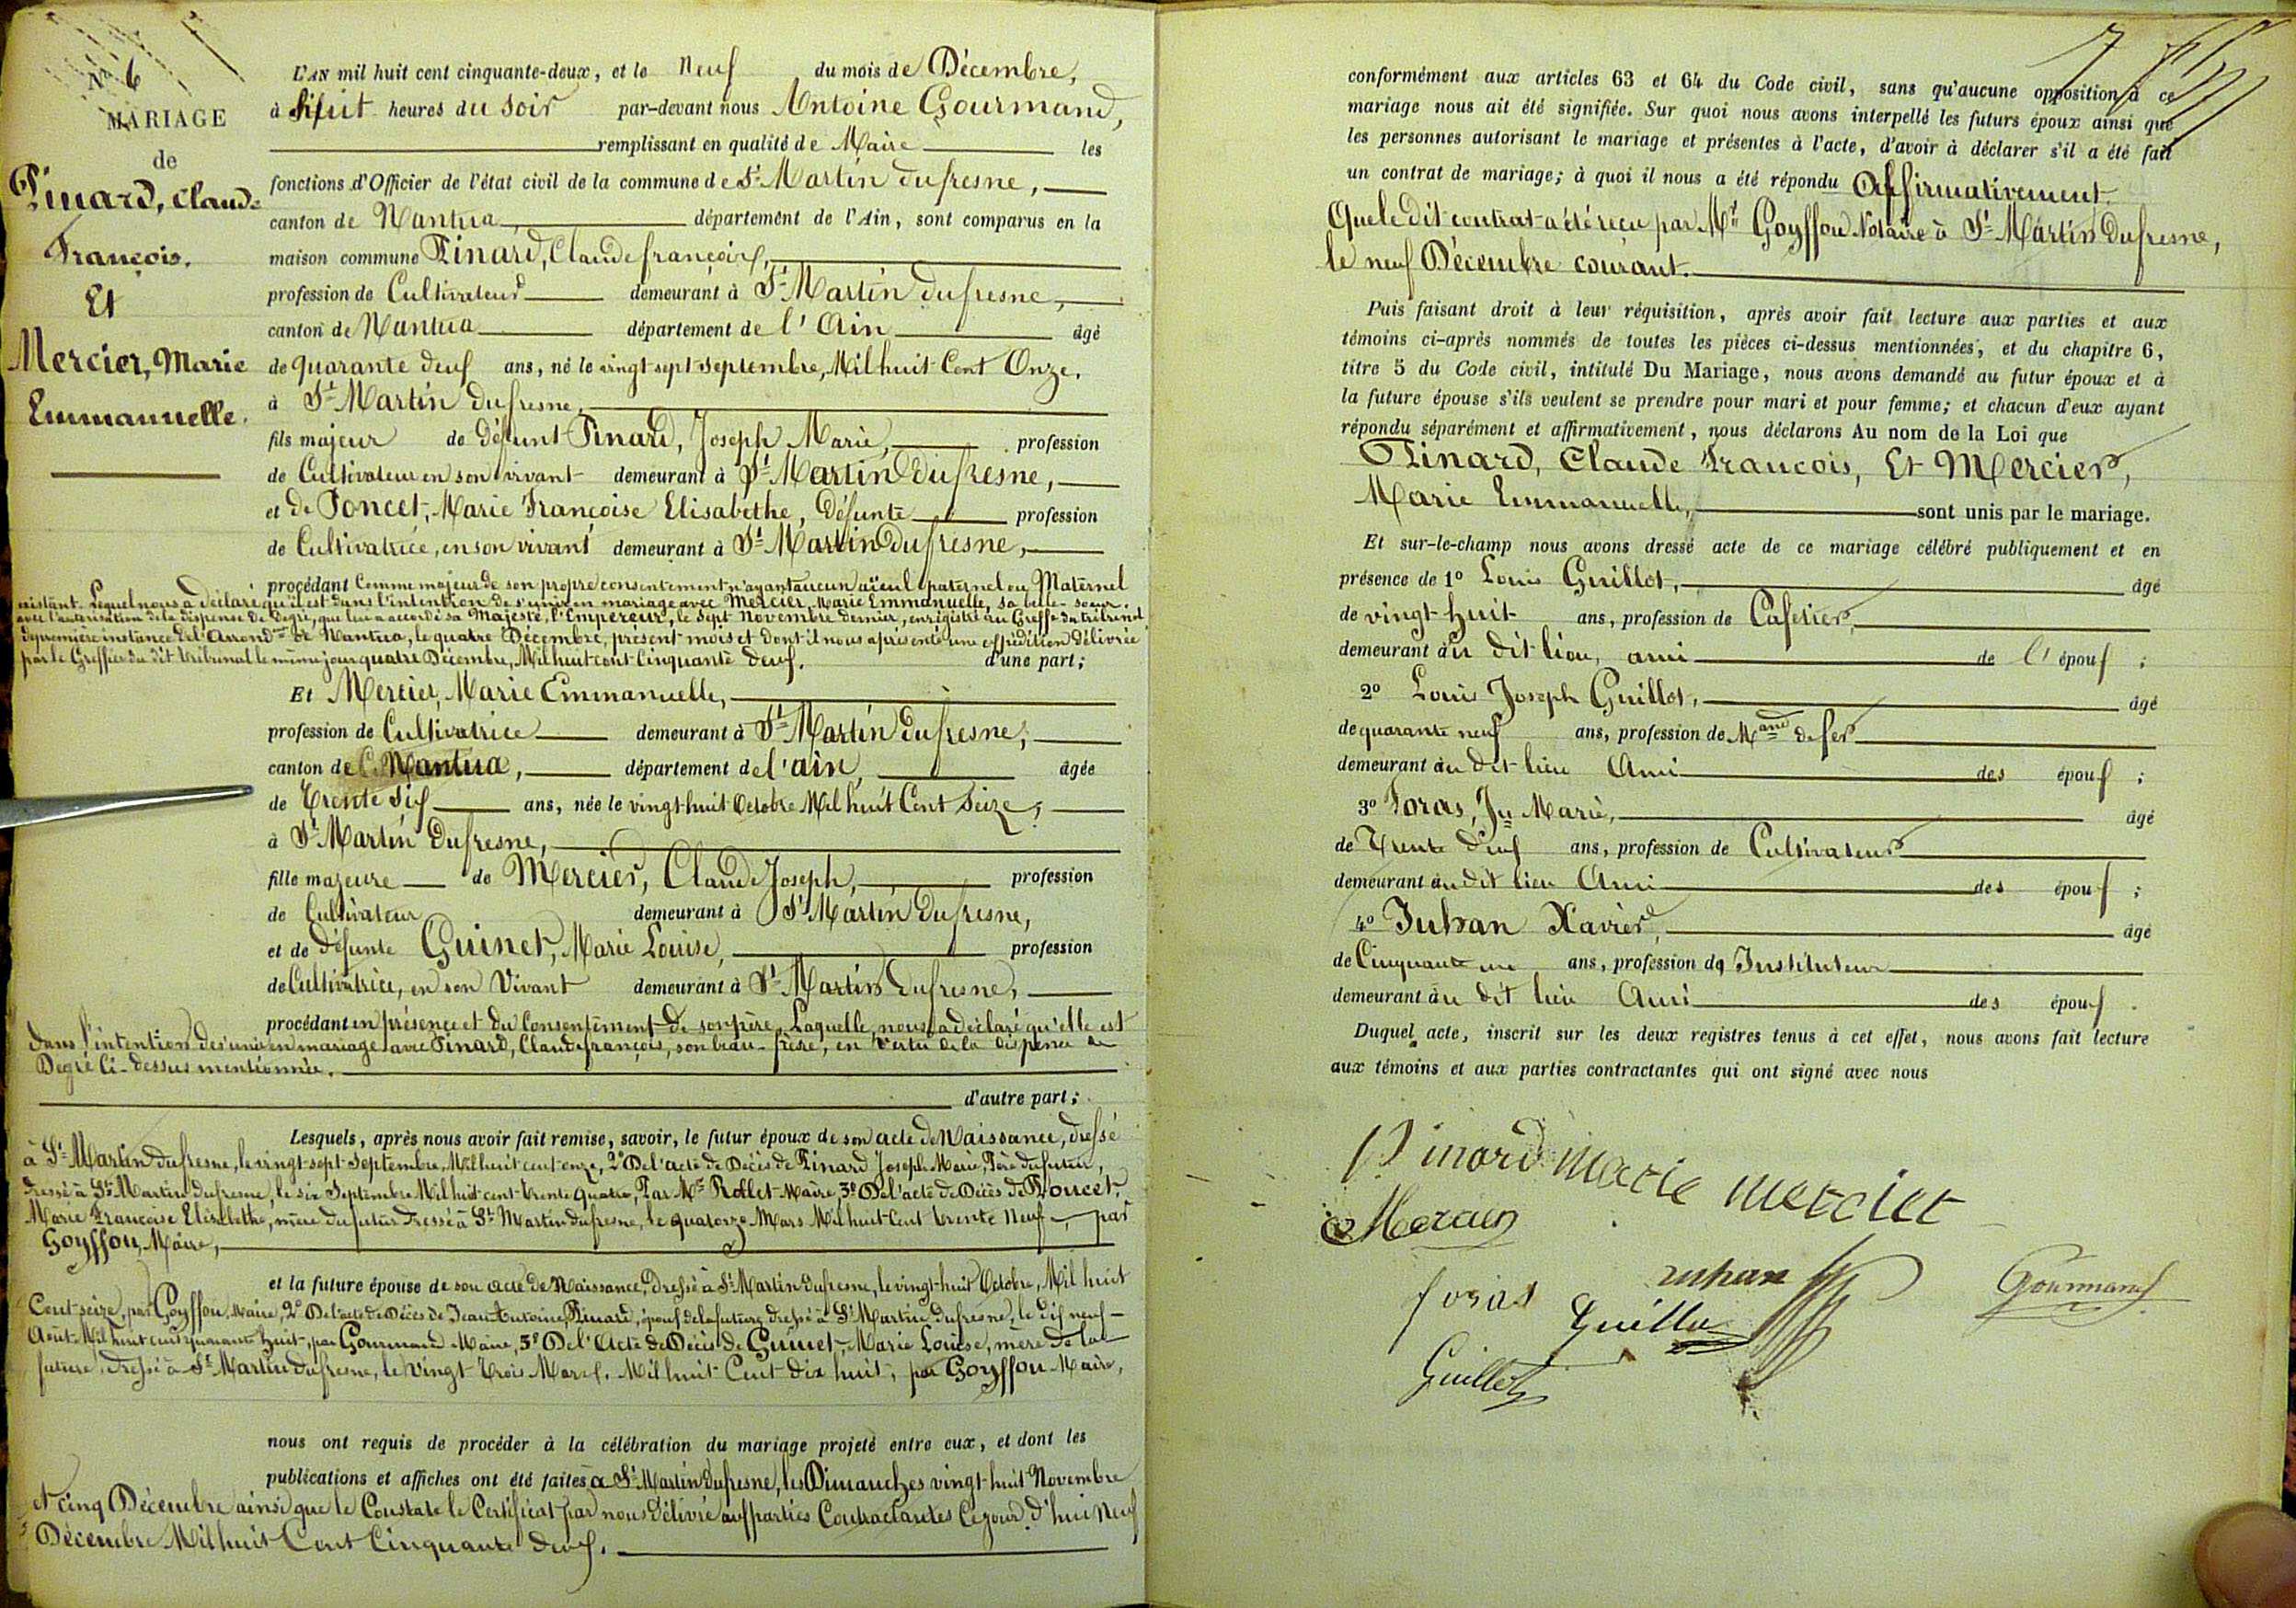 N° 6
MARIAGE
de
Pinard, Claude
François.
Et
Mercier, Marie
Emmanuelle.
L'AN mil huit cent cinquante-deux, et le Neuf du mois de Décembre,
à huit heures du soir par-devant nous Antoine Gourmand,
remplissant en qualité de Maire les
fonctions d'Officier de l'état civil de la commune de St Martin Dufresne,
canton de Nantua, département de l'Ain, sont comparus en la
maison commune Pinard, Claude françois,
profession de Cultivateur demeurant à St Martin Dufresne,
canton de Nantua département de l'Ain âgé
de quarante deux ans, né le vingt sept septembre, Mil huit Cent Onze.
à St Martin Dufresne,
fils majeur de défunt Pinard, Joseph Marie, profession
de Cultivateur en son vivant demeurant à St Martin Dufresne,
et de Poncet, Marie Françoise Elisabethe, Défunte profession
de Cultivatrice, en son vivant demeurant à St Martin Dufresne,
procédant Comme majeur de son propre consentement n'ayant aucun aïeul paternel ou Maternel
existant. Lequel nous a déclaré qu'il est dans l'intention de s'unir en mariage avec Mercier, Marie Emmanuelle, sa belle-soeur.
avec l'autorisation de la dispense de degré, que lui a accordé sa Majesté, l'Empereur, le sept Novembre dernier, enregistré au Greffe du tribunal
de première instance de l'Arrondt de Nantua, le quatre Décembre, présent mois et dont il nous a présenté une expédition délivrée
par le Greffier du dit tribunal le même jour quatre Décembre, Mil huit cent Cinquante deux. d'une part;
Et Mercier, Marie Emmanuelle,
profession de Cultivatrice demeurant à St Martin Dufresne,
canton de Nantua, département de l'ain, âgée
de Trente Six ans, née le vingt-huit Octobre Mil huit Cent Seize,
à St Martin Dufresne,
fille majeure de Mercier, Claude Joseph, profession
de Cultivateur demeurant à St Martin Dufresne,
et de défunte Guinet, Marie Louise, profession
de Cultivatrice, en son Vivant demeurant à St Martin Dufresne,
procédant en présence et du Consentement de son père, Laquelle, nous a déclaré qu'elle est
dans l'intention de s'unir en mariage avec Pinard, Claude françois, son beau-frère, en vertu de la dispense de
Degré Ci-dessus mentionnée.
d'autre part;
Lesquels, après nous avoir fait remise, savoir, le futur époux de son acte de Naissance, dressé
à St Martin Dufresne, le vingt-sept Septembre, Mil huit cent onze, 2° De l'acte de Décès de Pinard Joseph Marie, Père du futur,
dressé à St Martin Dufresne, le six Septembre Mil huit cent trente quatre, Par Mr Rollet Maire, 3° De l'acte de Décès de Poncet,
Marie Françoise Elisabethe, mère du futur dressé à St Martin Dufresne, le quatorze Mars Mil huit Cent trente Neuf, par
Goyffon, Maire,
et la future épouse de son acte de Naissance, Dressé à St Martin Dufresne, le vingt-huit Octobre, Mil huit
Cent seize, par Goyffon Maire, 2° De l'acte de Décès de Jean Antoine, Pinard, époux de la future, dressé à St Martin Dufresne, le dix neuf
Août Mil huit cent quarante huit, par Gourmand Maire, 3° De l'Acte de Décès de Guinet, Marie Louise, mère de la
future, dressé à St Martin Dufresne, le Vingt trois Mars. Mil huit Cent dix huit, par Goyffon Maire,
nous ont requis de procéder à la célébration du mariage projeté entre eux, et dont les
publications et affiches ont été faites à St Martin Dufresne, les Dimanches vingt-huit Novembre
et cinq Décembre ainsi que le Constate le Certificat par nous délivré aux parties Contractantes Ce jour d'hui Neuf
Décembre Mil huit Cent Cinquante deux.
7
conformément aux articles 63 et 64 du Code civil, sans qu'aucune opposition à ce
mariage nous ait été signifiée. Sur quoi nous avons interpellé les futurs époux ainsi que
les personnes autorisant le mariage et présentes à l'acte, d'avoir à déclarer s'il a été fait
un contrat de mariage; à quoi il nous a été répondu Affirmativement.
Que le dit contrat a été reçu par Mr Goyffon Notaire à St Martin Dufresne,
le neuf Décembre courant.
Puis faisant droit à leur réquisition, après avoir fait lecture aux parties et aux
témoins ci-après nommés de toutes les pièces ci-dessus mentionnées, et du chapitre 6,
titre 5 du Code civil, intitulé Du Mariage, nous avons demandé au futur époux et à
la future épouse s'ils veulent se prendre pour mari et pour femme; et chacun d'eux ayant
répondu séparément et affirmativement, nous déclarons Au nom de la Loi que
Pinard, Claude François, Et Mercier,
Marie Emmanuelle, sont unis par le mariage.
Et sur-le-champ nous avons dressé acte de ce mariage célébré publiquement et en
présence de 1° Louis Guillot, âgé
de vingt-huit ans, profession de Cafetier,
demeurant au dit lieu, ami de l'époux;
2° Louis Joseph Guillot, âgé
de quarante neuf ans, profession de Mand de fer
demeurant au dit lieu Ami des époux;
3° Foras, Jh Marie, âgé
de Trente deux ans, profession de Cultivateur
demeurant au dit lieu Ami des époux;
4° Juhan Xavier, âgé
de Cinquante un ans, profession de Instituteur
demeurant au dit lieu Ami des époux.
Duquel acte, inscrit sur les deux registres tenus à cet effet, nous avons fait lecture
aux témoins et aux parties contractantes qui ont signé avec nous
Pinard marie mercier
Mercier
foras juhan Gourmand
Guillot
Guillot